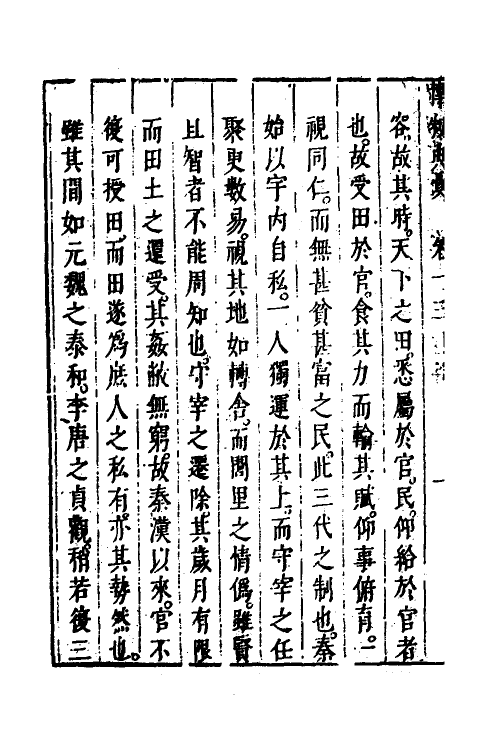 容故其時天下之田悉屬於官民仰給於官者
也故受田於官食其力而輸其賦仰事俯育一
視同仁而無甚貧甚富之民此三代之制也秦
始以宇内自私一人獨運於其上而守宰之任
聚更數易視其地如轉舍而閭里之情僞雖賢
且智者不能周知也守宰之遷除其歲月有限
而田土之還受其姦敝無窮故秦漢以來官不
復可授田而田遂爲庶人之私有亦其勢然也
雖其間如元魏之泰和李唐之貞觀稍若復三